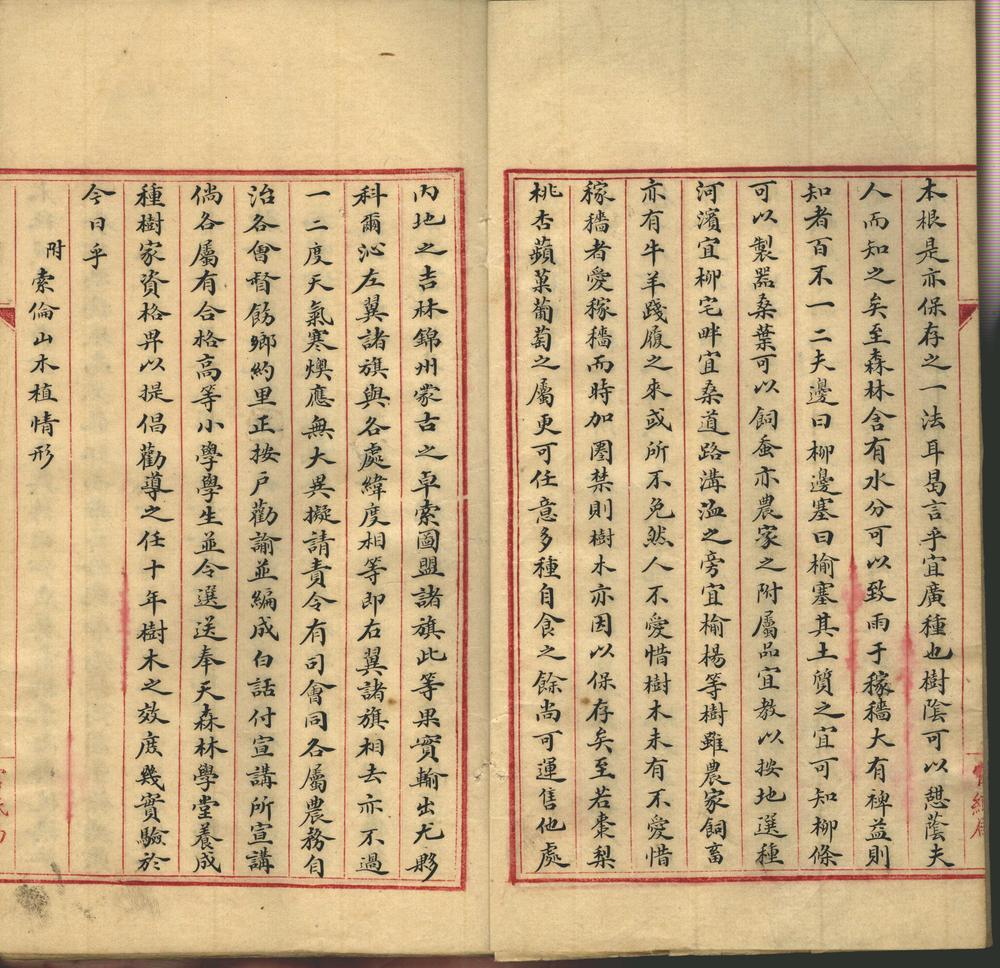 本根是亦保存之一法耳曷言乎宜廣種也樹陰可以憇蔭夫
人而知之矣至森林含有水分可以致雨于稼穡大有裨益則
知者百不一二夫邊曰柳邊塞曰榆塞其土質之宜可知柳條
可以製器桑葉可以飼蚕亦農家之附屬品宜教以按地選種
河濱宜柳宅畔宜桑道路溝洫之旁宜榆楊等樹雖農家飼畜
亦有牛羊踐履之來或所不免然人不愛惜樹木未有不愛惜
稼穡者愛稼穡而時加圈禁則樹木亦因以保存矣至若棗梨
桃杏蘋菓葡萄之屬更可任意多種自食之餘尚可運售他處
內地之吉林錦州蒙古之卓索圖盟諸旗此等果實輸出尤夥
科爾沁左翼諸旗與各處緯度相等即右翼諸旗相去亦不過
一二度天氣寒燠應無大異擬請責令有司會同各屬農務自
治各會督飭鄉約里正按户勸諭並編成白話付宣講所宣講
倘各屬有合格高等小學學生並令選送奉天森林學堂養成
種樹家資格畀以提倡勸導之任十年樹木之效庶幾實驗於
今日乎
附索倫山木植情形